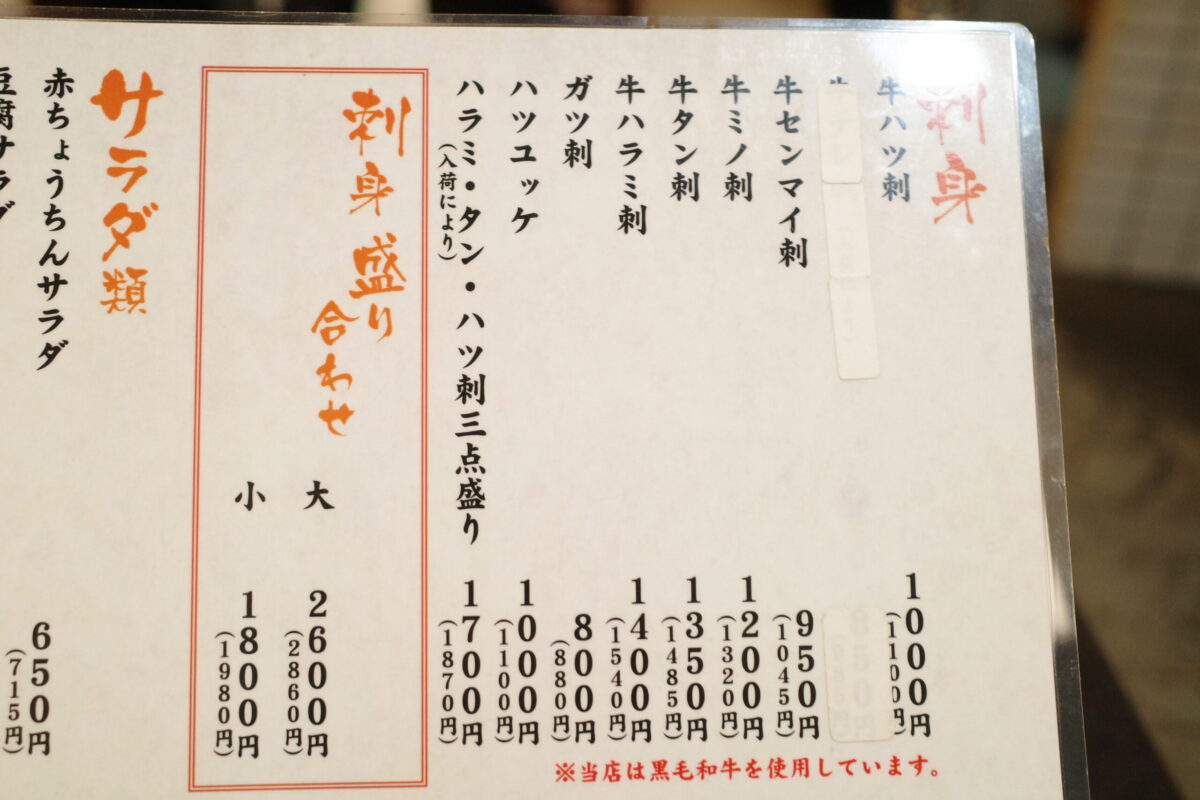 刺身
牛ハツ刺 1000円
(1100円)
牛センマイ刺 950円
(1045円)
牛ミノ刺 1200円
(1320円)
牛タン刺 1350円
(1485円)
牛ハラミ刺 1400円
(1540円)
ガツ刺 800円
(880円)
ハツユッケ 1000円
(1100円)
ハラミ・タン・ハツ刺三点盛り 1700円
(入荷により) (1870円)
刺身盛り
合わせ
大 2600円
(2860円)
小 1800円
(1980円)
サラダ類
赤ちょうちんサラダ 650円
(715円)
豆腐サラダ
※当店は黒毛和牛を使用しています。